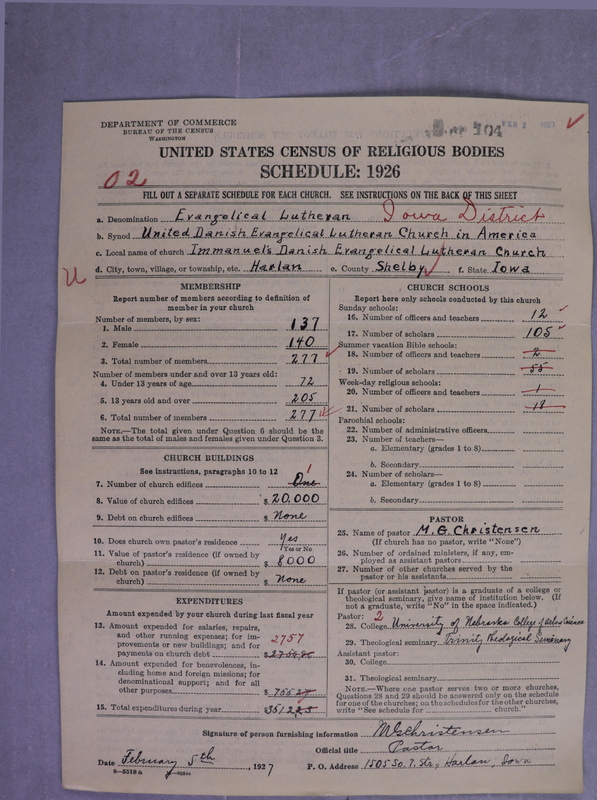 DEPARTMENT OF COMMERCE
BUREAU OF THE CENSUS
WASHINGTON
104
UNITED STATES CENSUS OF RELIGIOUS BODIES
SCHEDULE: 1926
02
FILL OUT A SEPARATE SCHEDULE FOR EACH CHURCH. SEE INSTRUCTIONS ON THE BACK OF THIS SHEET
a. Denomination Evangelical Lutheran Iowa District
b. Synod United Danish Evangelical Lutheran Church in America
c. Local name of church Immanuel's Danish Evangelical Lutheran Church
U d. City, town, village, or township, etc. Harlan e. County Shelby f. State Iowa
MEMBERSHIP
Report number of members according to definition of
member in your church
Number of members, by sex:
1. Male 137
2. Female 140
3. Total number of members 277
Number of members under and over 13 years old:
4. Under 13 years of age 72
5. 13 years old and over 205
6. Total number of members 277
NOTE.—The total given under Question 6 should be the
same as the total of males and females given under Question 3.
CHURCH BUILDINGS
See instructions, paragraphs 10 to 12
7. Number of church edifices One 1
8. Value of church edifices $ 20,000
9. Debt on church edifices $ None
10. Does church own pastor's residence? Yes
Yes or No
11. Value of pastor's residence (if owned by
church) $ 8000
12. Debt on pastor's residence (if owned by
church) $ None
EXPENDITURES
Amount expended by your church during last fiscal year
13. Amount expended for salaries, repairs,
and other running expenses; for im-
provements or new buildings; and for
payments on church debt $ 2757
14. Amount expended for benevolences, in-
cluding home and foreign missions; for
denominational support; and for all
other purposes $ 755
15. Total expenditures during year $ 3512
CHURCH SCHOOLS
Report here only schools conducted by this church
Sunday schools:
16. Number of officers and teachers 12
17. Number of scholars 105
Summer vacation Bible schools:
18. Number of officers and teachers 2
19. Number of scholars 55
Week-day religious schools:
20. Number of officers and teachers 1
21. Number of scholars 18
Parochial schools:
22. Number of administrative officers
23. Number of teachers—
a. Elementary (grades 1 to 8)
b. Secondary
24. Number of scholars—
a. Elementary (grades 1 to 8)
b. Secondary
PASTOR
25. Name of pastor M. G. Christensen
(If church has no pastor, write "None")
26. Number of ordained ministers, if any, em-
ployed as assistant pastors
27. Number of other churches served by the
pastor or his assistants
If pastor (or assistant pastor) is a graduate of a college or
theological seminary, give name of institution below. (If
not a graduate, write "No" in the space indicated.)
Pastor: 2
28. College University of Nebraska College of
29. Theological seminary Trinity Theological Seminary
Assistant pastor:
30. College
31. Theological seminary
NOTE.—Where one pastor serves two or more churches,
Questions 28 and 29 should be answered only on the schedule
for one of the churches; on the schedules for the other churches,
write "See schedule for church."
Signature of person furnishing information MGChristensen
Official title Pastor
Date February 5th, 1927 P. O. Address 1505 So. 7. Str., Harlan, Iowa